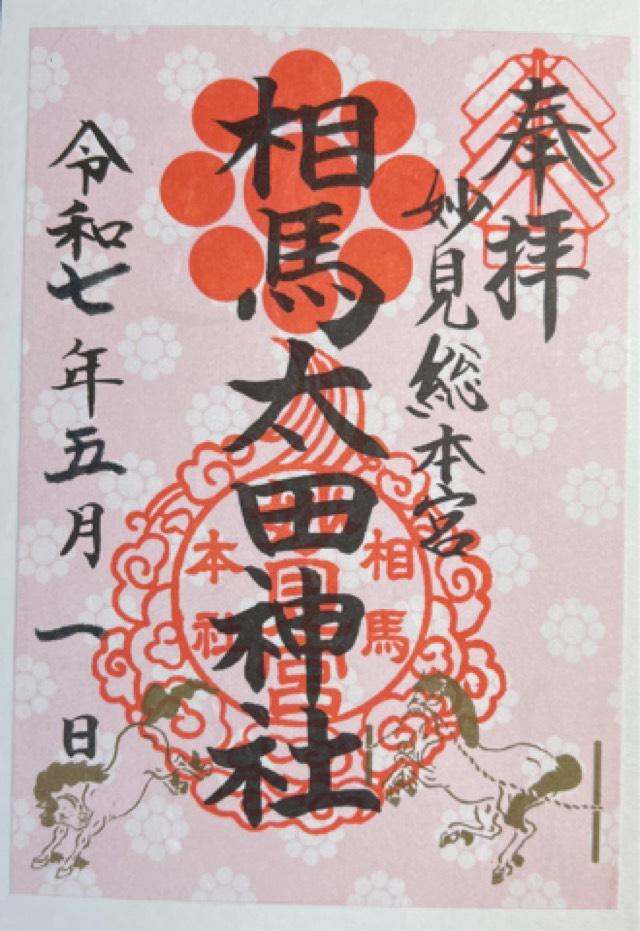 奉拝
妙見総本宮
相馬太田神社
相馬
妙見宮
本社
令和七年五月一日